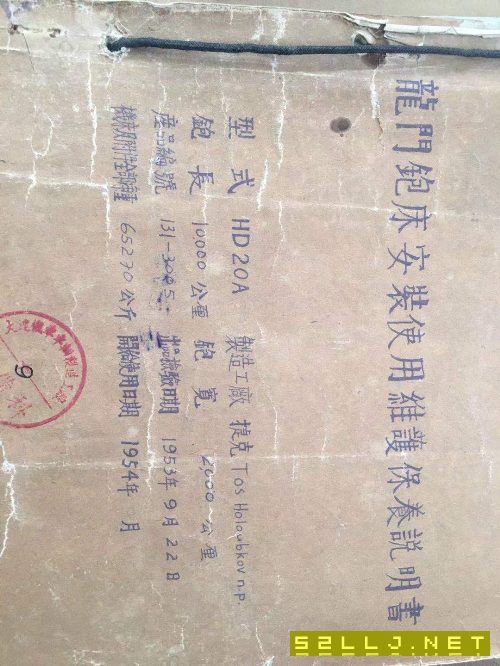 龍門鉋床安裝使用維護保養説明書
型式 HD20A 製造工廠 捷克 Tos Holoubkov n.p.
鉋長 10,000 公厘 鉋寬 2000 公厘
産品編號 131-3005 檢驗日期 1953年9月22日
機床附件全部種 65270公斤 開始使用日期 1954年 月
9
52LLJ.NET